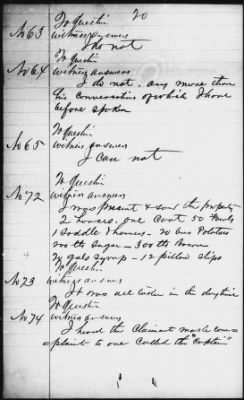 20
No 63 To Questin
witness answers
I do not
No 64 To Questin
witness answers
I do not - any more than
his conversation of which I have
before spoken
No 65 To Questin
witness answers
I can not
No 72 To Questin
witness answers
I was present & saw the property
2 horses, one Cow
1 Saddle & - 20 bus Potatoes
Sugar - 300 lbs
gals syrup - 12 pillow slips
No 73 To Questin
witness answers
It was all taken in the daytime
No 74 To Questin
witness answers
I heard the Claimant make com=
=plaint to one called the "Captain"